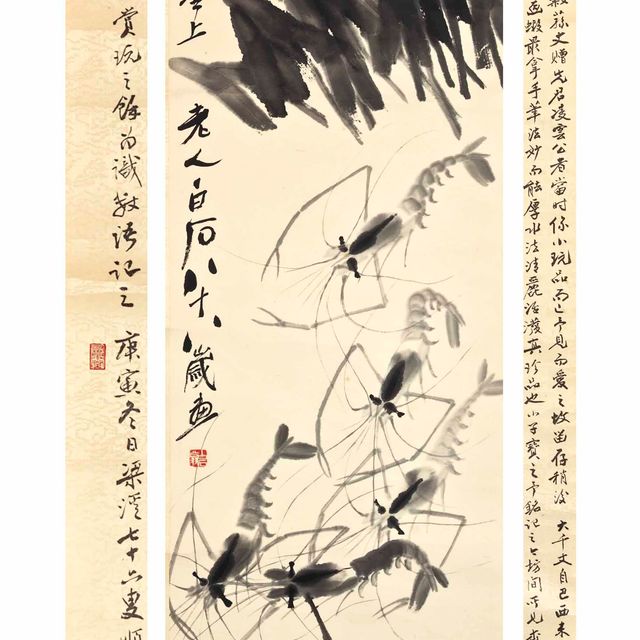 蓀史贈先君凌雲公者當時係小玩品而已予見而愛之故留存稍後 大千丈自巴西來
画蝦最拿手筆法妙而能厚水法清麗活潑真珍品也小子寶之予銘記之今坊間所見
上
老人白石八十八歲画
賞玩之餘為識數語記之 庚寅冬日梁溪七十六叟順